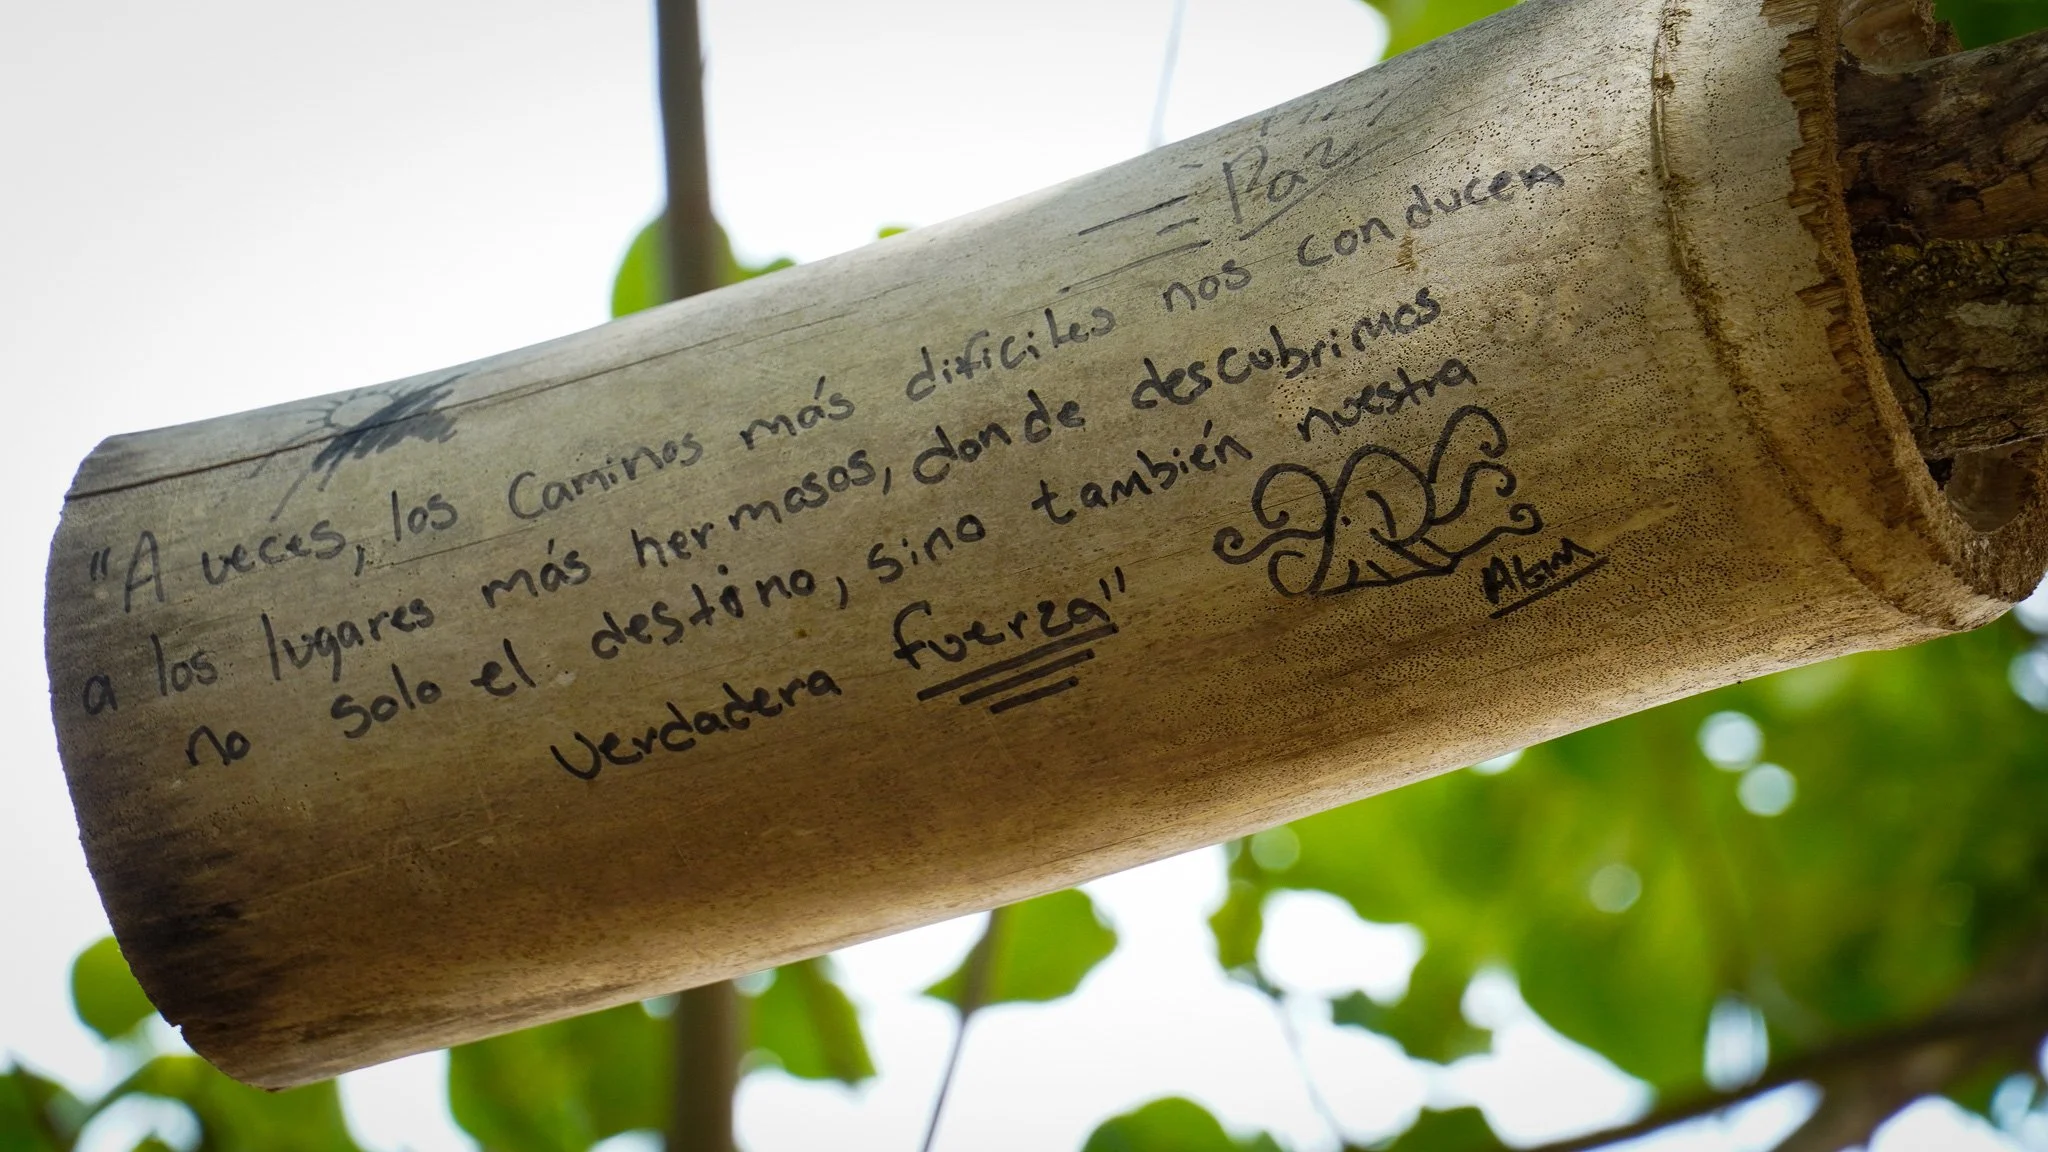 Paz
"A veces, los caminos más dificiles nos conducen
a los lugares más hermosos, donde descubrimos
no solo el destino, sino también nuestra
verdadera fuerza"